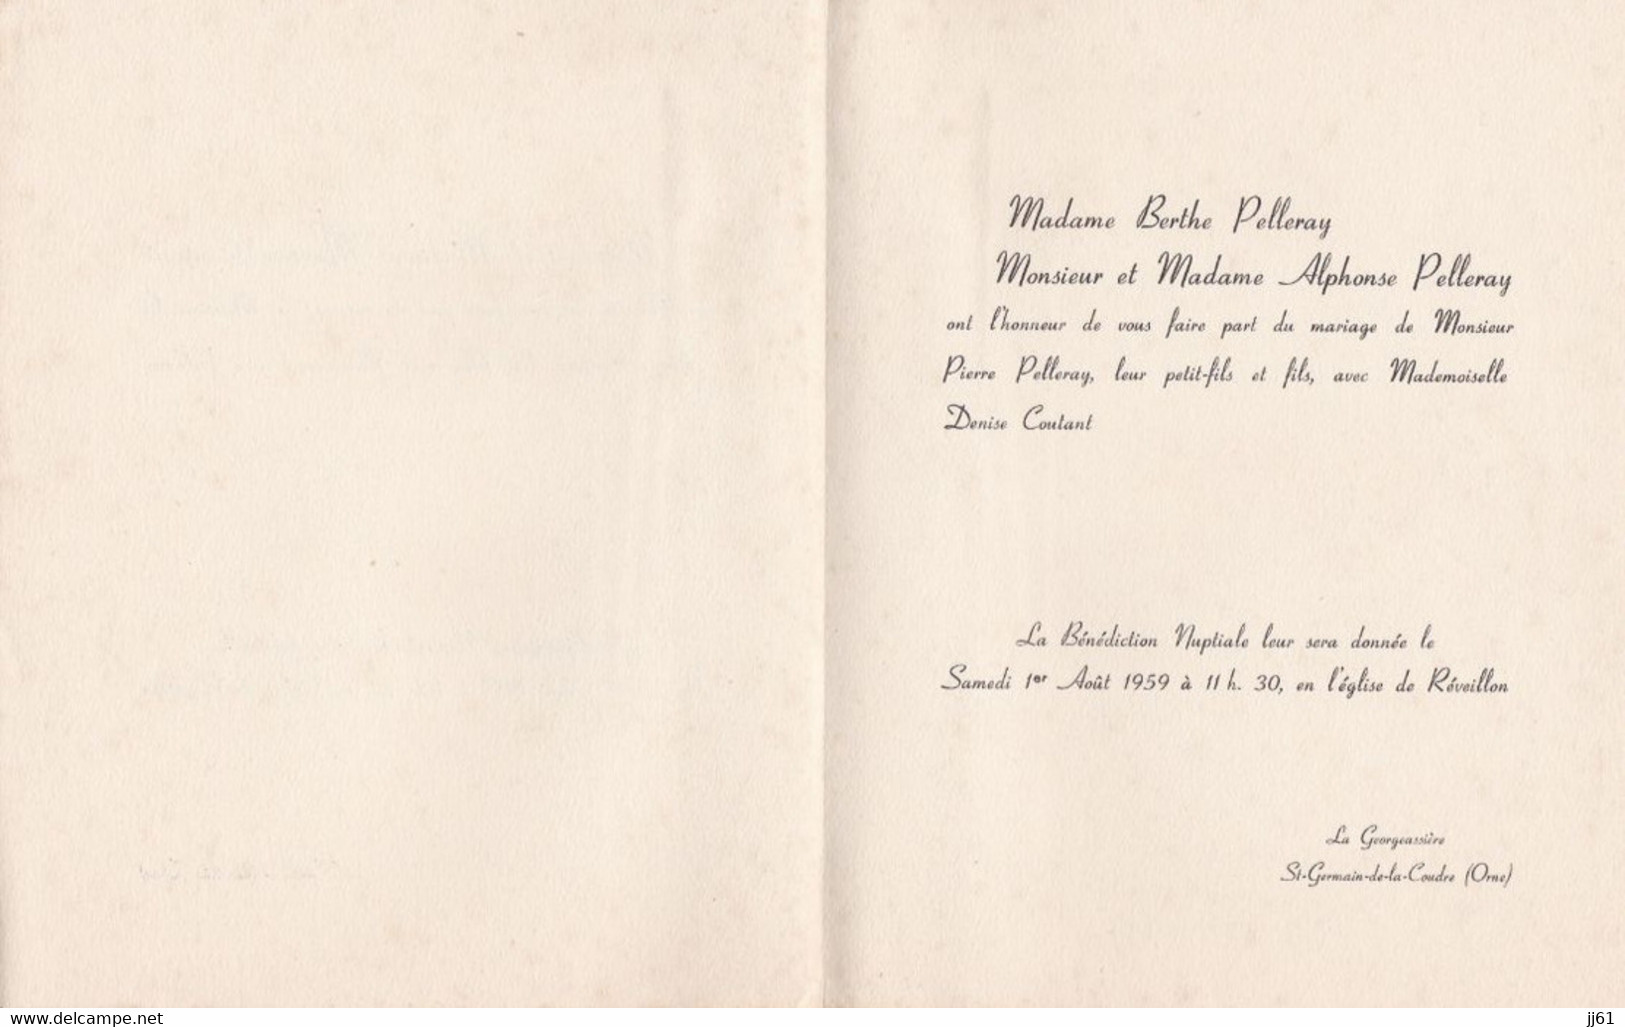 Madame Berthe Pelleray
Monsieur et Madame Alphonse Pelleray
ont l'honneur de vous faire part du mariage de Monsieur
Pierre Pelleray, leur petit-fils et fils, avec Mademoiselle
Denise Coutant
La Bénédiction Nuptiale leur sera donnée le
Samedi 1er Août 1959 à 11 h. 30, en l'église de Réveillon
La Georgeassière
St-Germain-de-la-Coudre (Orne)
www.delcampe.net
jj61